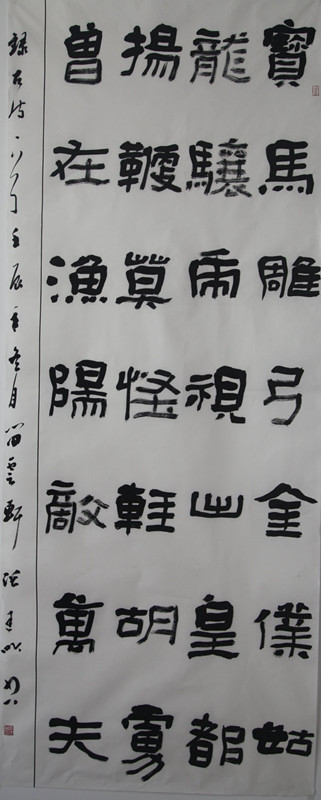 寶馬雕弓金僕姑
龍驤虎視出皇都
揚鞭莫怪輕胡虜
曾在漁陽敵萬夫
錄古诗一首壬辰年冬月留雲軒